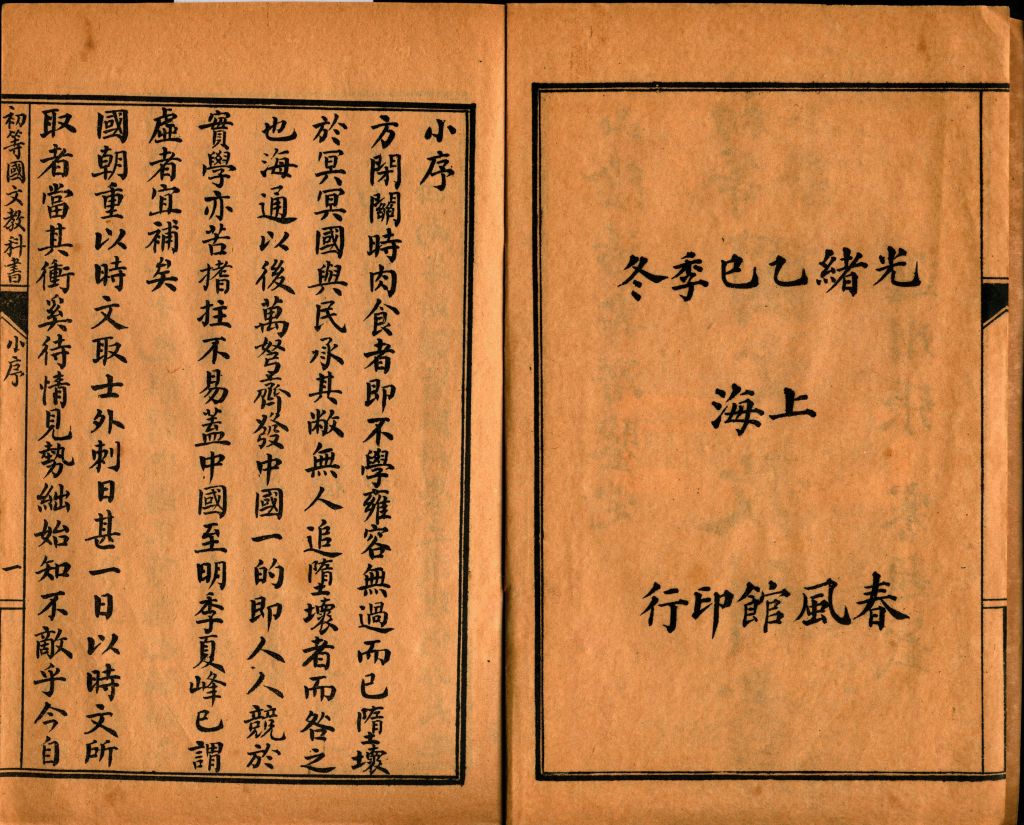 光緒乙巳季冬
上海
春風館印行
小序
方閉關時肉食者即不學雍容無過而已墮壞
於冥冥國與民承其敝無人追墮壞者而咎之
也海通以後萬弩齊發中國一的即人人競於
實學亦苦搘拄不易蓋中國至明季夏峰已謂
虛者宜補矣
國朝重以時文取士外刺日甚一日以時文所
取者當其衝奚待情見勢絀始知不敵乎今自
初等國文教科書
小序
一